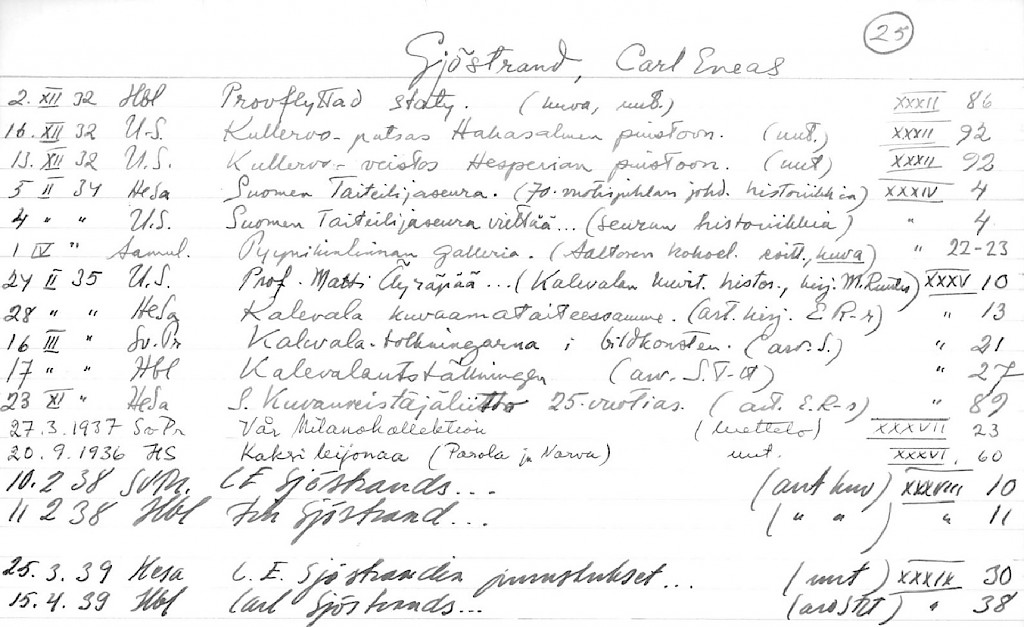 25
Sjöstrand, Carl Eneas
2. XII 32 Hbl Provflyttad staty. (kuva, uut.) XXXII 86
16. XII 32 U.S. Kullervo-patsas Hakasalmen puistoon. (uut.) XXXII 92
13. XII 32 U.S. Kullervo-veistos Hesperian puistoon. (uut) XXXII 92
5 II 34 HeSa Suomen Taiteilijaseura. (70-vuotisjuhlan johd. historiikkia) XXXIV 4
4 " " U.S. Suomen Taiteilijaseura viettää... (seuran historiikkia) " 4
1 IV " Aamul. Pyynikinlinnan galleria. (Aaltosen kokoel. esitt., kuva) " 22-23
24 II 35 U.S. Prof. Matti Äyräpää... (Kalevalan kuvit. histor., kirj. M. ) XXXV 10
28 " " HeSa Kalevala kuvaamataiteessamme. (art. kirj. E.R-r) " 13
16 III " Sv.Pr Kalevala-tolkningarna i bildkonsten. (arv. S.) " 21
17 " " Hbl Kalevalautställningen (arv. S.T-) " 27
23 XI " HeSa S. Kuvanveistäjäliitto 25-vuotias. (art. E.R-s) " 89
27.3.1937 SvPr Vår Milanokollektion (luettelo) XXXVII 23
20.9.1936 HS Kaksi leijonaa (Parola ja Narva) uut. XXXVI. 60
10.2 38 SvPr. CE Sjöstrands... (art kuv) XXXVIII 10
11 2 38 Hbl Sjöstrand... (" ") " 11
25.3.39 Hesa C.E. Sjöstrandin junnostukset... (uut) XXXIX 30
15.4.39 Hbl Carl Sjöstrands... " 38